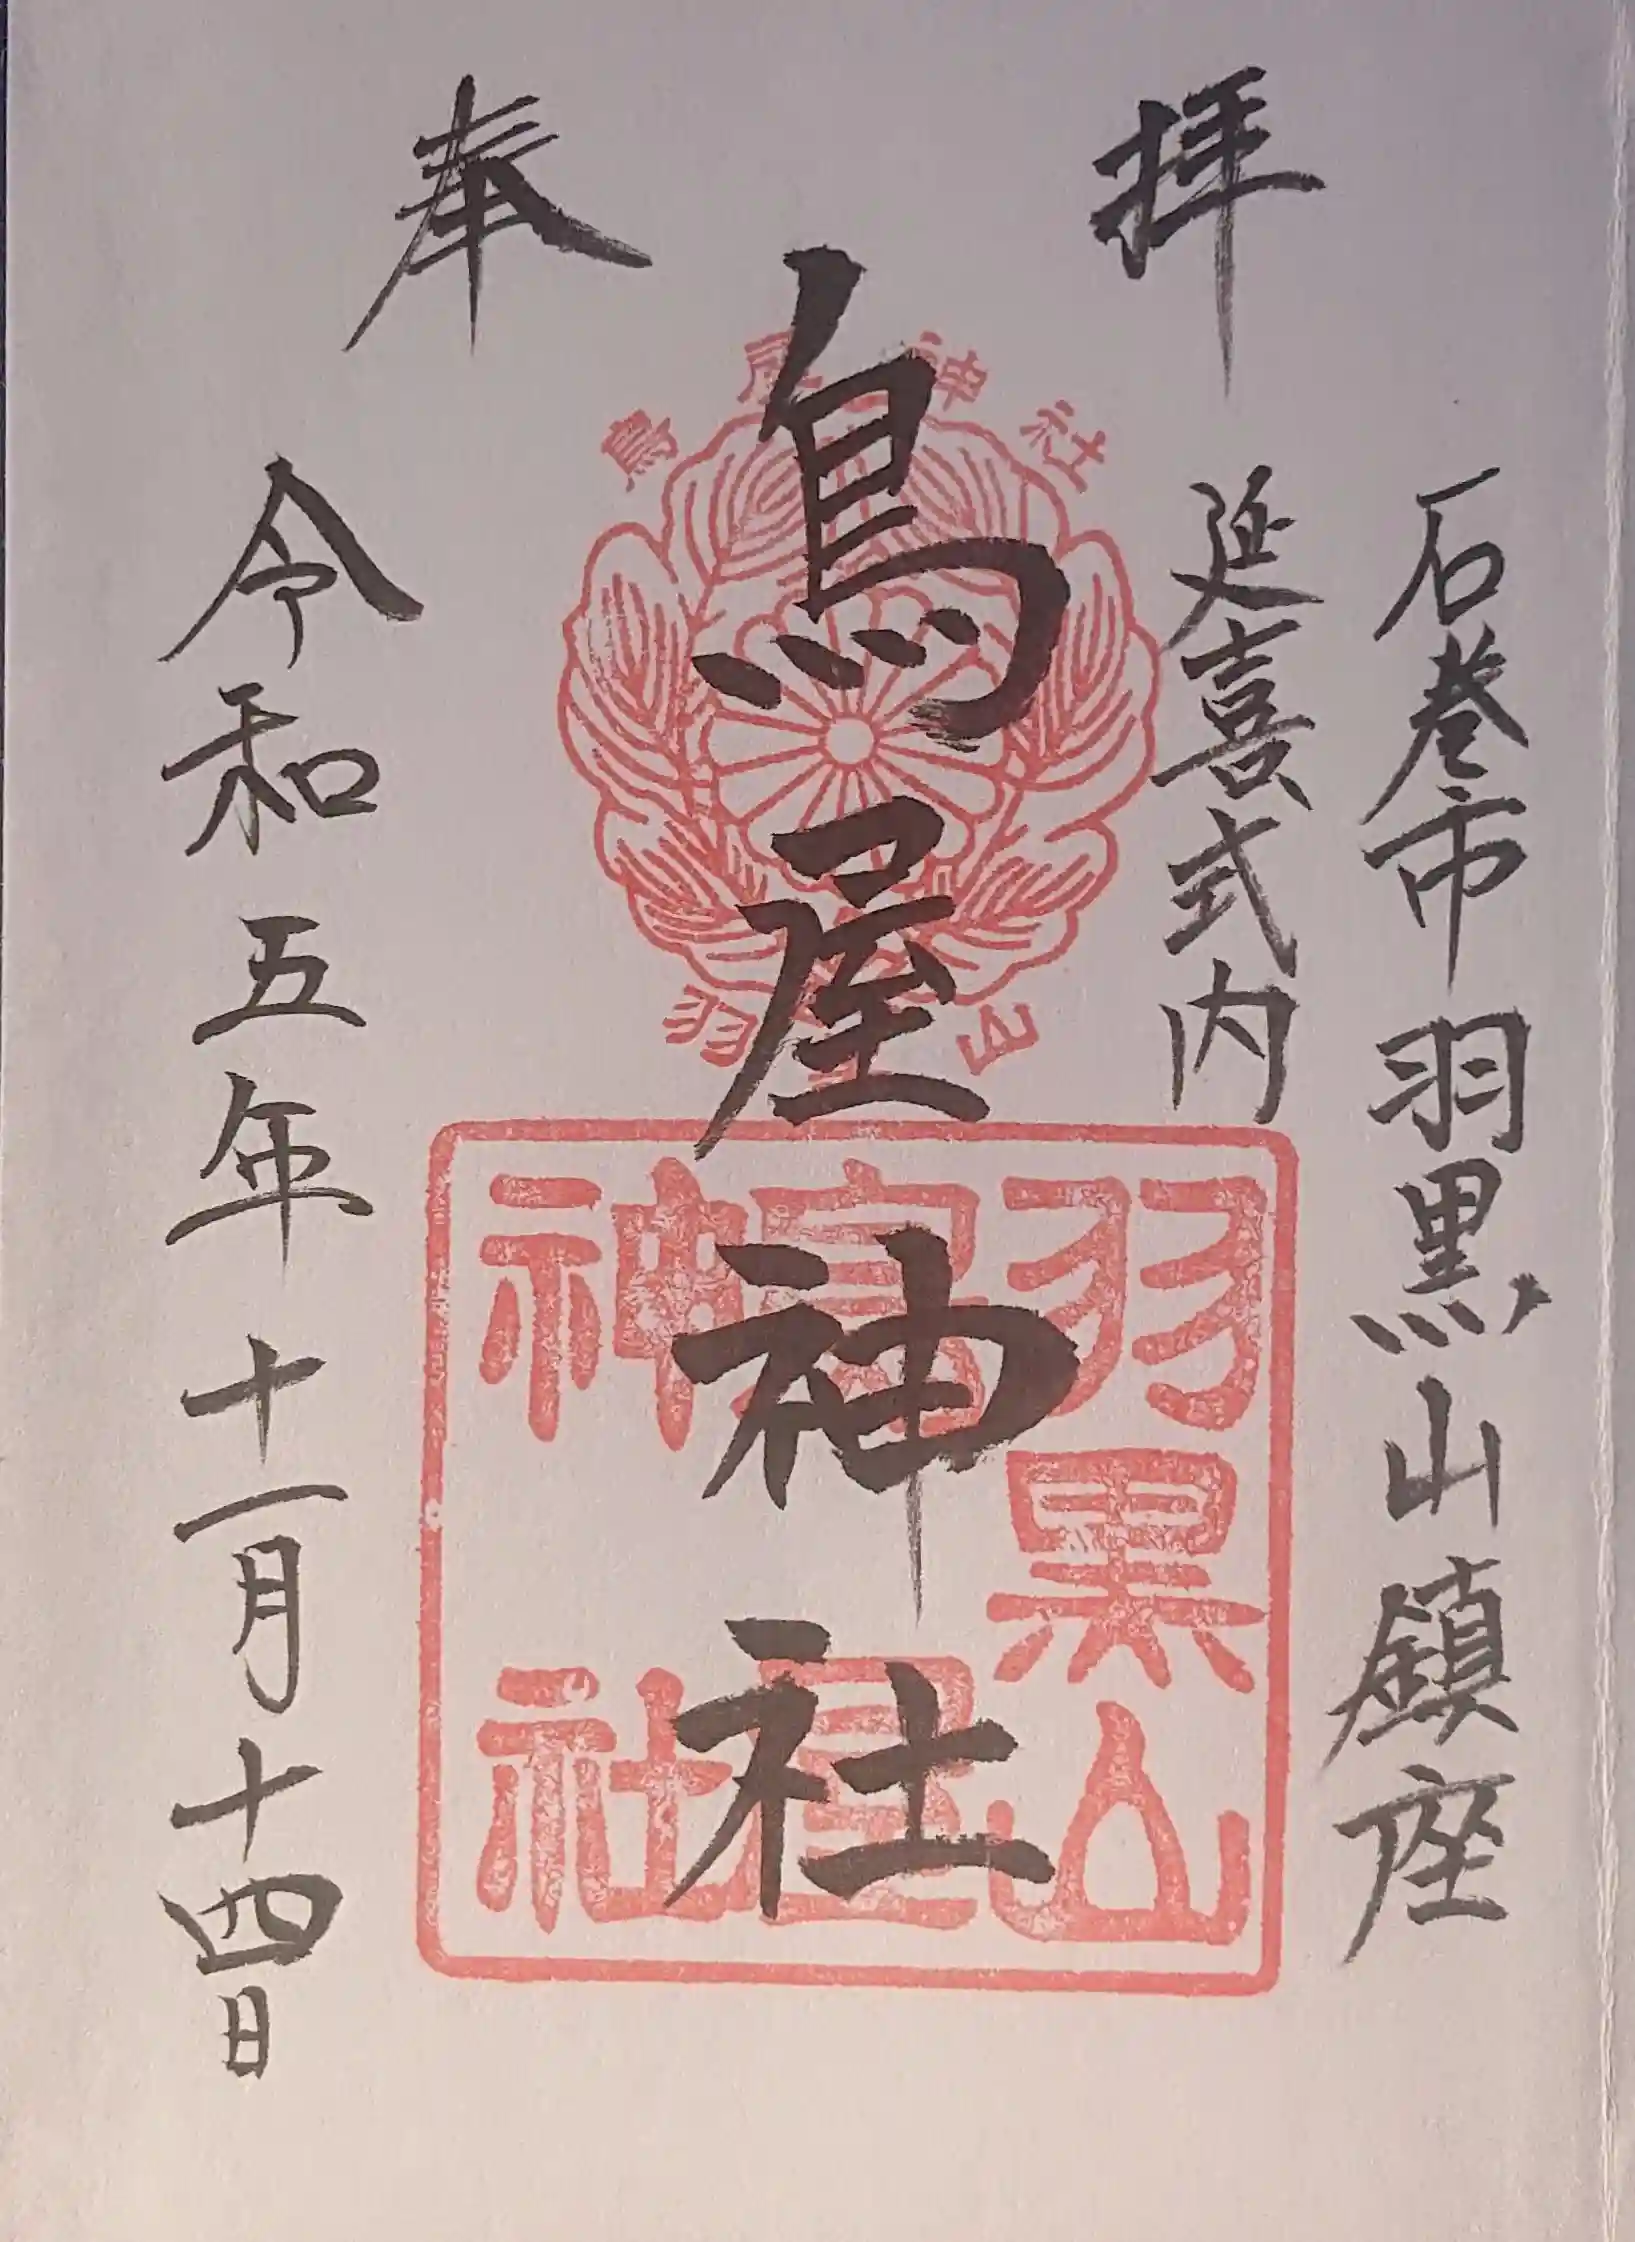 奉拝
石巻市羽黒山鎮座
延喜式内
鳥屋神社
令和五年十一月十四日
鳥屋神社
羽黒山
羽黒山
鳥屋
神社